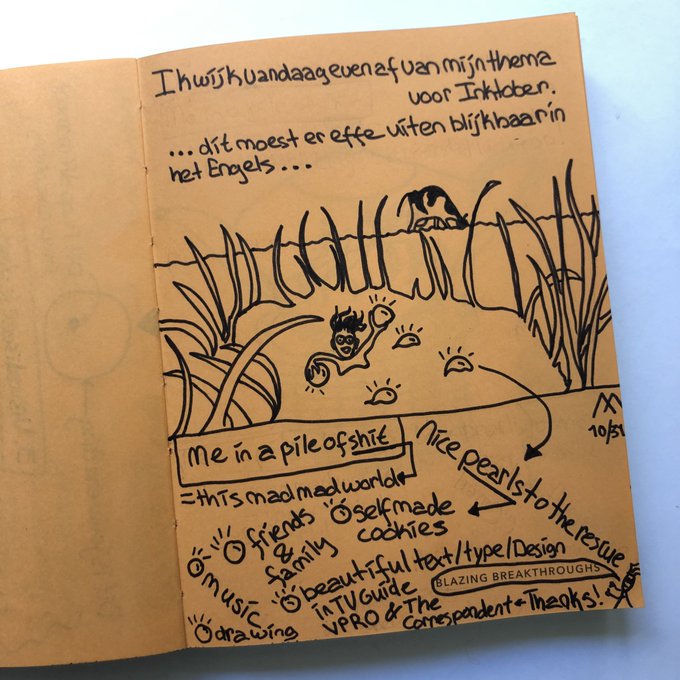 Ik wijk vandaag even af van mijn thema
voor Inktober.
...dit moest er effe uit en blijkbaar in
het Engels...
M
10/31
Me in a pile of shit
= this mad mad world
nice pearls to the rescue
friends
&
family
selfmade
cookies
music
beautiful text/type/Design
in TV Guide
VPRO & The
Correspondent
BLAZING BREAKTHROUGHS
Thanks!
drawing